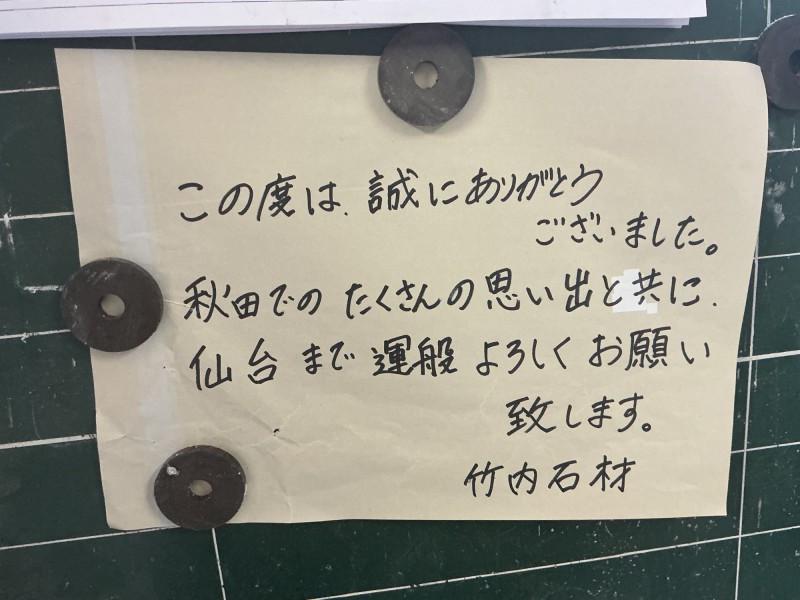 この度は、誠にありがとう
ございました。
秋田でのたくさんの思い出と共に、
仙台まで運般よろしくお願い
致します。
竹内石材